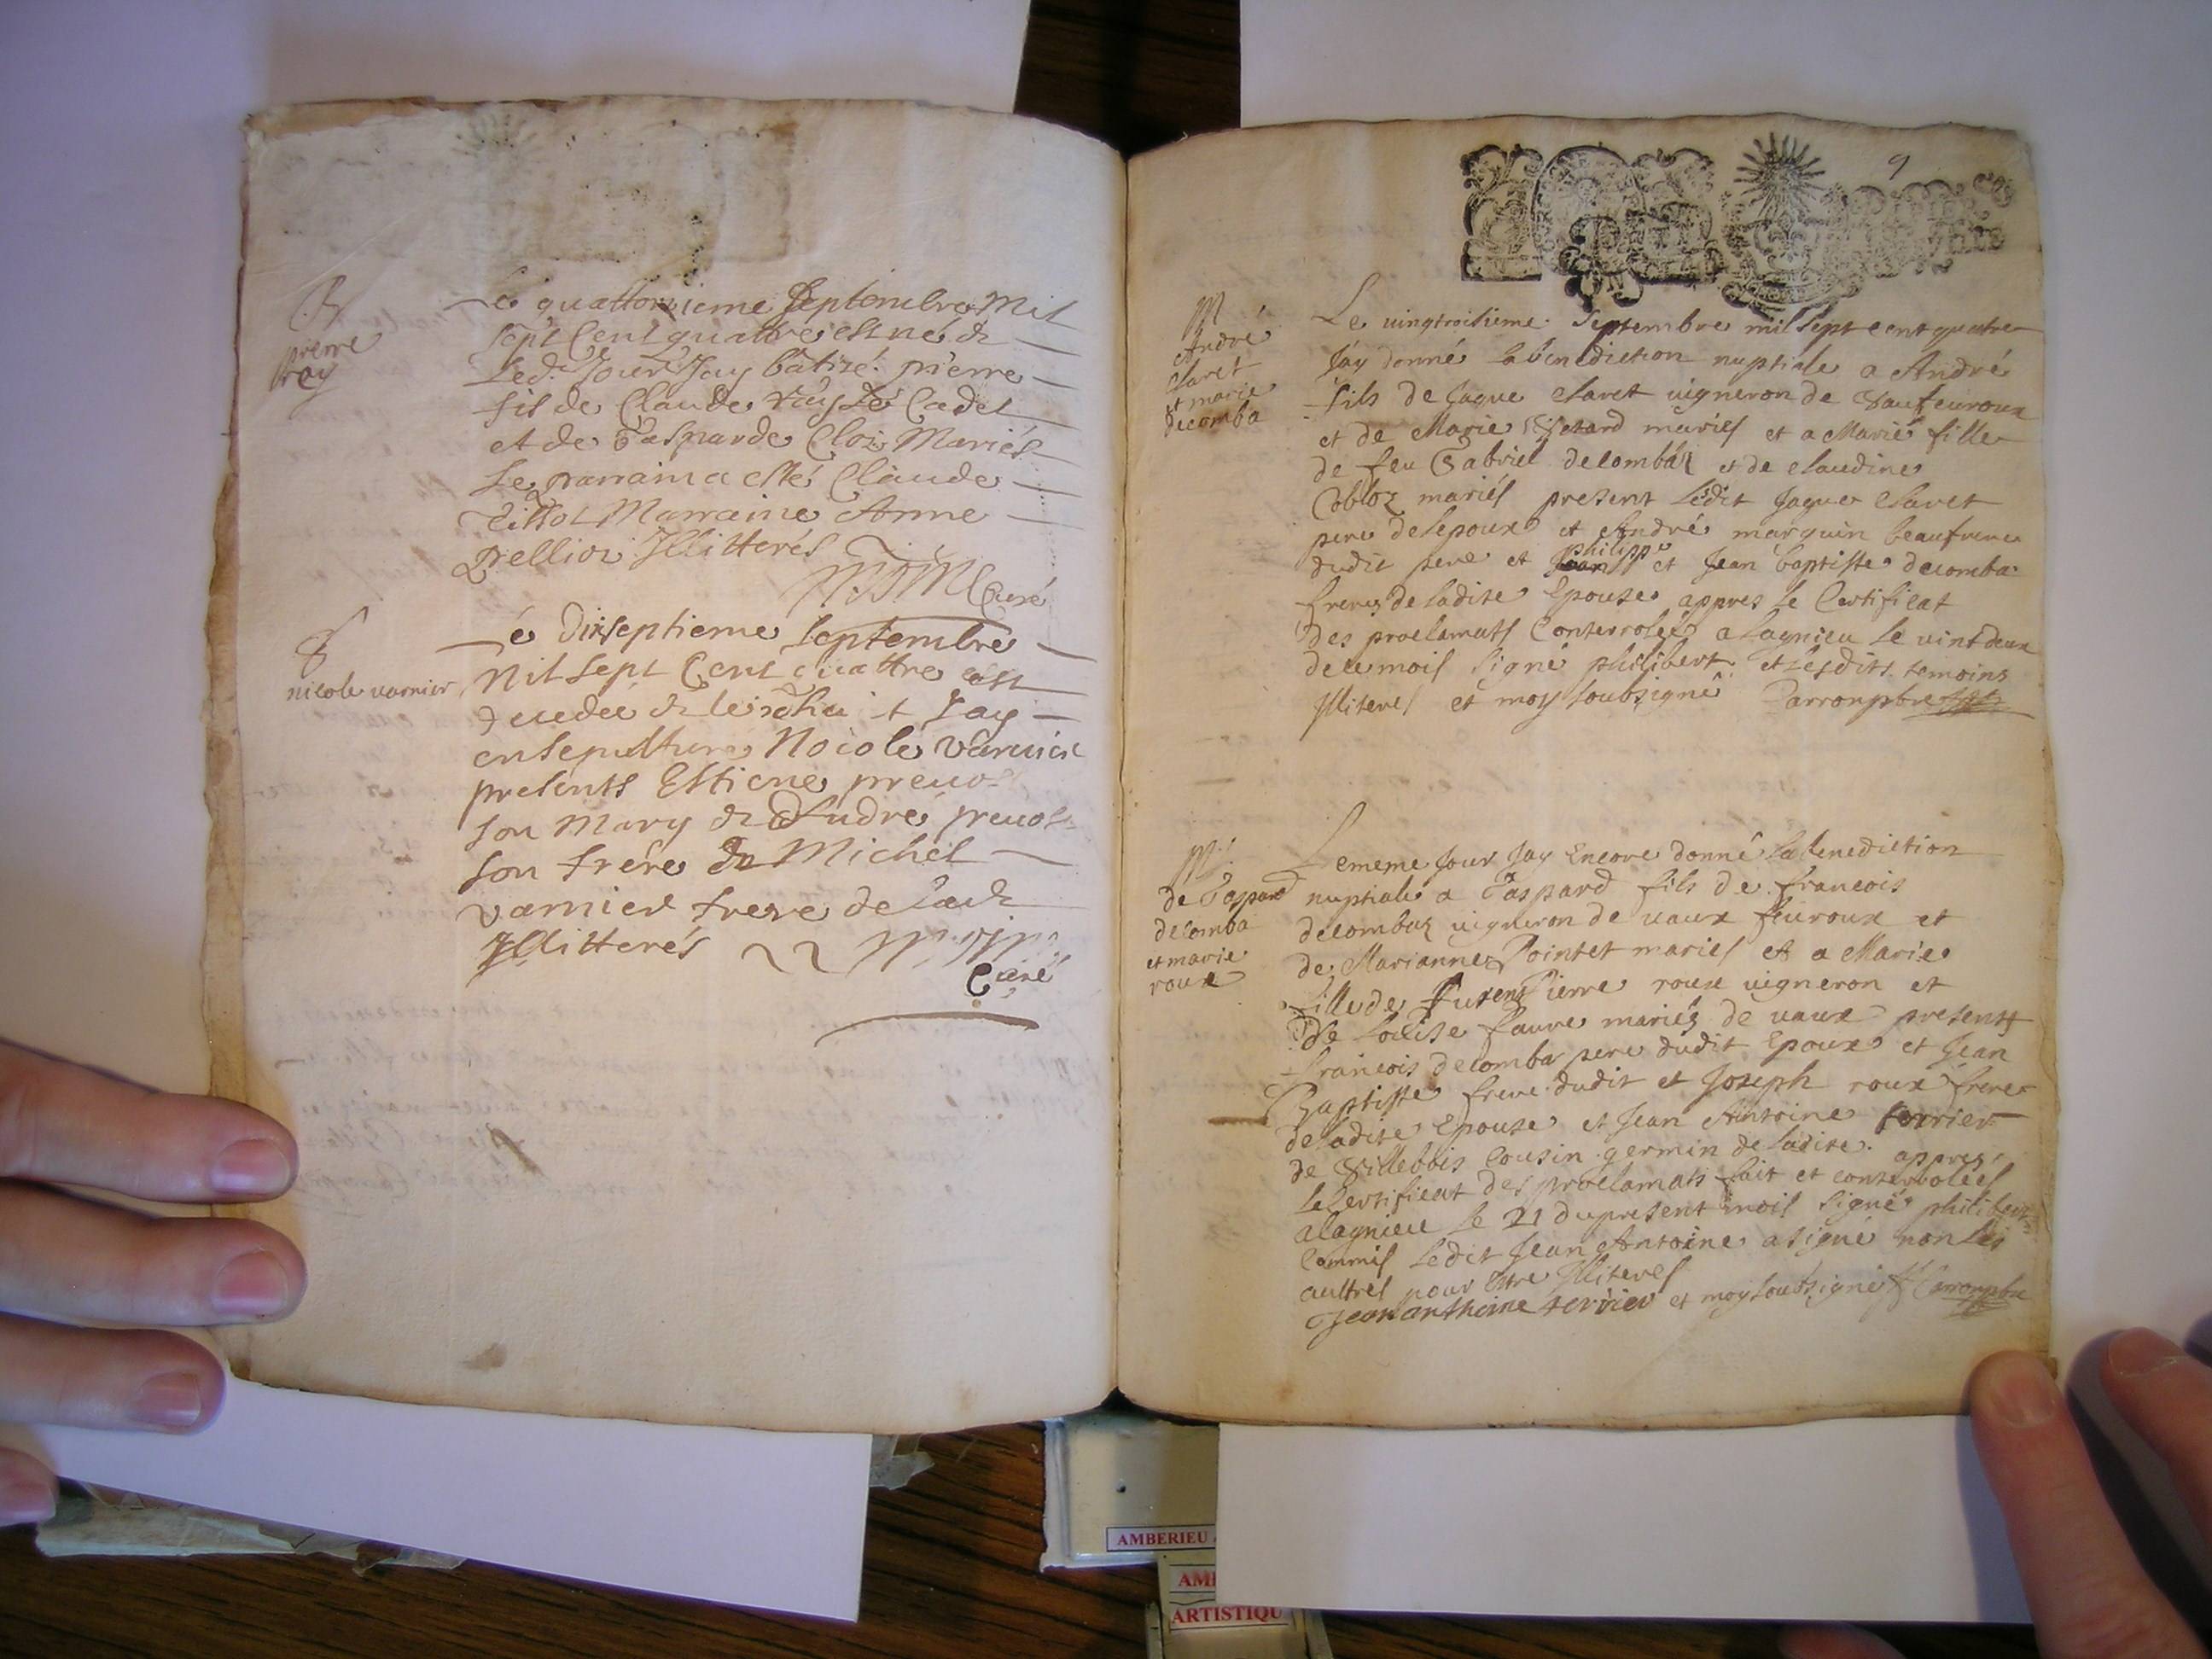 B
pierre
Ray
Le quattorzieme Septembre Mil
sept Cent quattre est né &
Led. Jour Jay bâtizé pierre
fil de Claude Ray Le Cadet
et de Gasparde Cloi Mariés
Le parrain a esté Claude
Marraine Anne
pellioz Jllitterés
Curé
nicole varnier
Le Dixseptieme Septembre
Mil sept Cent quattre est
decedée & le Jay
ensepulture Nocole Varnier
presents Estiene prevo
son Mary & Andre prevos
son frere & Michel
varnier frere de lad
Jllitterés
Curé
9
M
André
Claret
et marie
decomba
Le vingtroisieme Septembre mil sept cent quatre
Jay donné la benediction nuptiale a André
fils de Jaque Claret vigneron de Vaufeuroux
et de Marie mariés et a Marie fille
de feu Gabriel decombaz et de claudine
Cobloz mariés present ledit Jaque Claret
pere delepoux et André marquin beaufrere
dudit pere et philippe et Jean baptiste decomba
freres de ladite Epouse appres le Certificat
des proclamats Conterrolées a lagnieu le vint deux
de ce mois signé philibert et lesdits temoins
Jlliterés et moy soubsigné Carronpbre
M
de Gaspard
decomba
et marie
roux
Lememe Jour Jay Encore donné la benediction
nuptiale a Gaspard fils de francois
decombaz vigneron de vaux feuroux et
de Marianne Pointet mariés et a Marie
fille de Pierre roux vigneron et
de Louise faure mariés de vaux presents
francois decomba pere dudit Epoux et Jean
Baptiste frere dudit et Joseph roux frere
de ladite Epouse et Jean Antoine ferrier
de Villebois Cousin germin de ladite appres
le Certificat des proclamats fait et conterrolées
a lagnieu le 21 du present mois signé philibert
Commis ledit Jean Antoine a signé non les
aultres pour Estre Jlliterés
Jean anthoine ferrier et moy soubsigné Carronpbre
AMBERIEU
AMB
ARTISTIQU